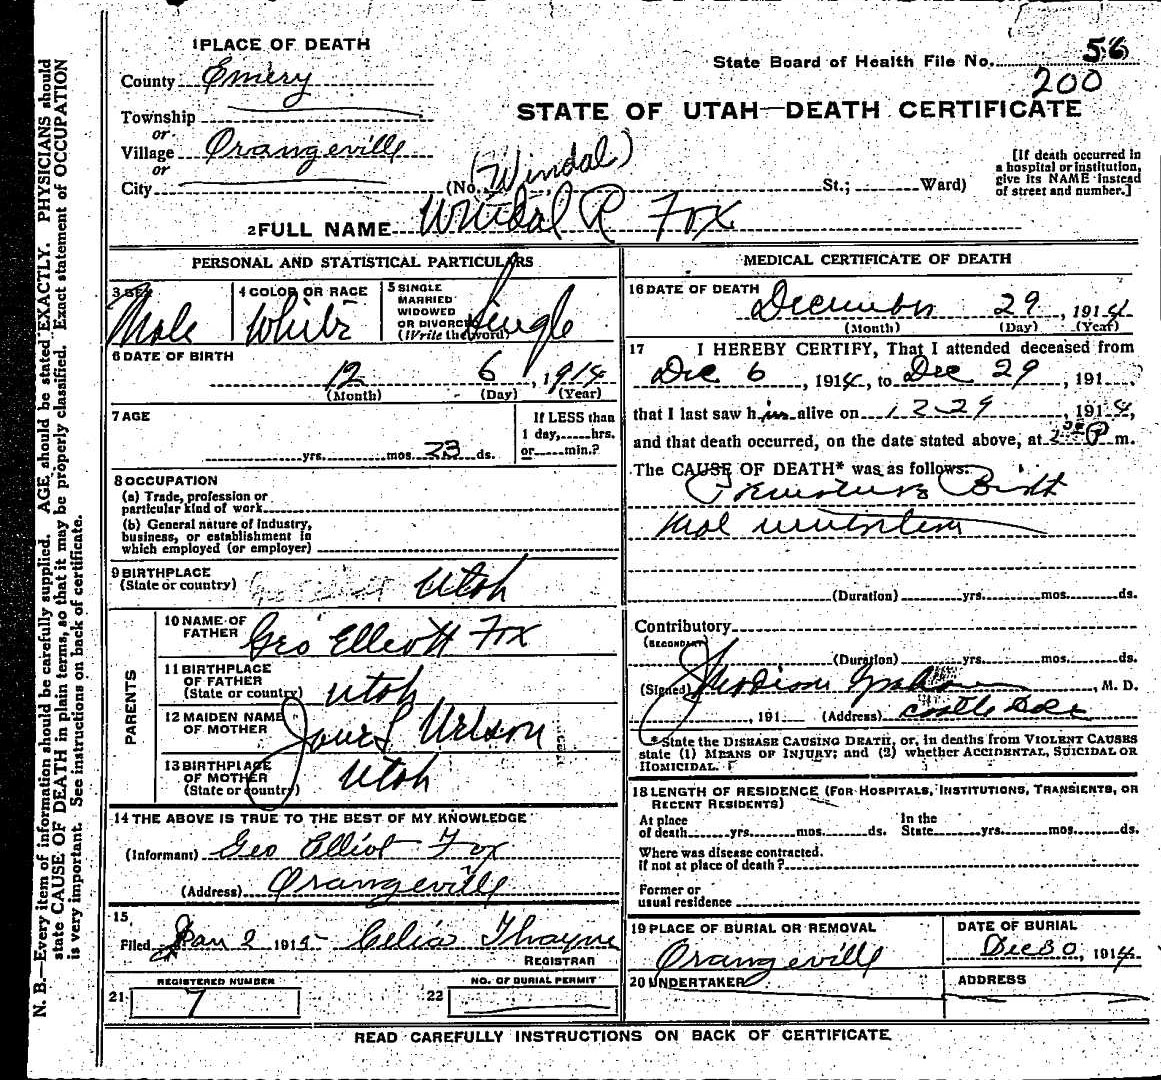 1 PLACE OF DEATH
State Board of Health File No. 56
200
County Emery
STATE OF UTAH—DEATH CERTIFICATE
Township
or
Village Orangeville
or
City
(Windal)
(No. St.; Ward)
[If death occurred in
a hospital or institution,
give its NAME instead
of street and number.]
2 FULL NAME Windal R Fox
PERSONAL AND STATISTICAL PARTICULARS
3 SEX
Male
4 COLOR OR RACE
White
5 SINGLE
MARRIED
WIDOWED
OR DIVORCED
(Write the word)
Single
6 DATE OF BIRTH
12 6, 1914
(Month) (Day) (Year)
7 AGE
yrs. mos. 23 ds.
If LESS than
1 day, hrs.
or min.?
8 OCCUPATION
(a) Trade, profession or
particular kind of work
(b) General nature of industry,
business, or establishment in
which employed (or employer)
9 BIRTHPLACE
(State or country) Utah
PARENTS
10 NAME OF
FATHER Geo Elliott Fox
11 BIRTHPLACE
OF FATHER
(State or country) Utah
12 MAIDEN NAME
OF MOTHER
13 BIRTHPLACE
OF MOTHER
(State or country) Utah
14 THE ABOVE IS TRUE TO THE BEST OF MY KNOWLEDGE
(Informant) Geo Elliot Fox
(Address) Orangeville
15
Filed Jan 2 1915 Celia Thayne
REGISTRAR
REGISTERED NUMBER
21 7
NO. OF BURIAL PERMIT
22
MEDICAL CERTIFICATE OF DEATH
16 DATE OF DEATH
December 29, 1914
(Month) (Day) (Year)
17 I HEREBY CERTIFY, That I attended deceased from
Dec 6, 1914, to Dec 29, 191
that I last saw him alive on 12-29, 1914,
and that death occurred, on the date stated above, at P m.
The CAUSE OF DEATH* was as follows:
Premature Birth
Mal nutrition
(Duration) yrs. mos. ds.
Contributory
(SECONDARY)
(Duration) yrs. mos. ds.
(Signed), M. D.
, 191 (Address) Castle Dale
*State the DISEASE CAUSING DEATH, or, in deaths from VIOLENT CAUSES
state (1) MEANS OF INJURY; and (2) whether ACCIDENTAL, SUICIDAL OR
HOMICIDAL.
18 LENGTH OF RESIDENCE (FOR HOSPITALS, INSTITUTIONS, TRANSIENTS, OR
RECENT RESIDENTS)
At place
of death yrs. mos. ds.
In the
State yrs. mos. ds.
Where was disease contracted.
If not at place of death?
Former or
usual residence
19 PLACE OF BURIAL OR REMOVAL
Orangeville
DATE OF BURIAL
Dec 30, 1914
20 UNDERTAKER
ADDRESS
READ CAREFULLY INSTRUCTIONS ON BACK OF CERTIFICATE
N. B.—Every item of information should be carefully supplied. AGE should be stated EXACTLY. PHYSICIANS should
state CAUSE OF DEATH in plain terms, so that it may be properly classified. Exact statement of OCCUPATION
is very important. See instructions on back of certificate.